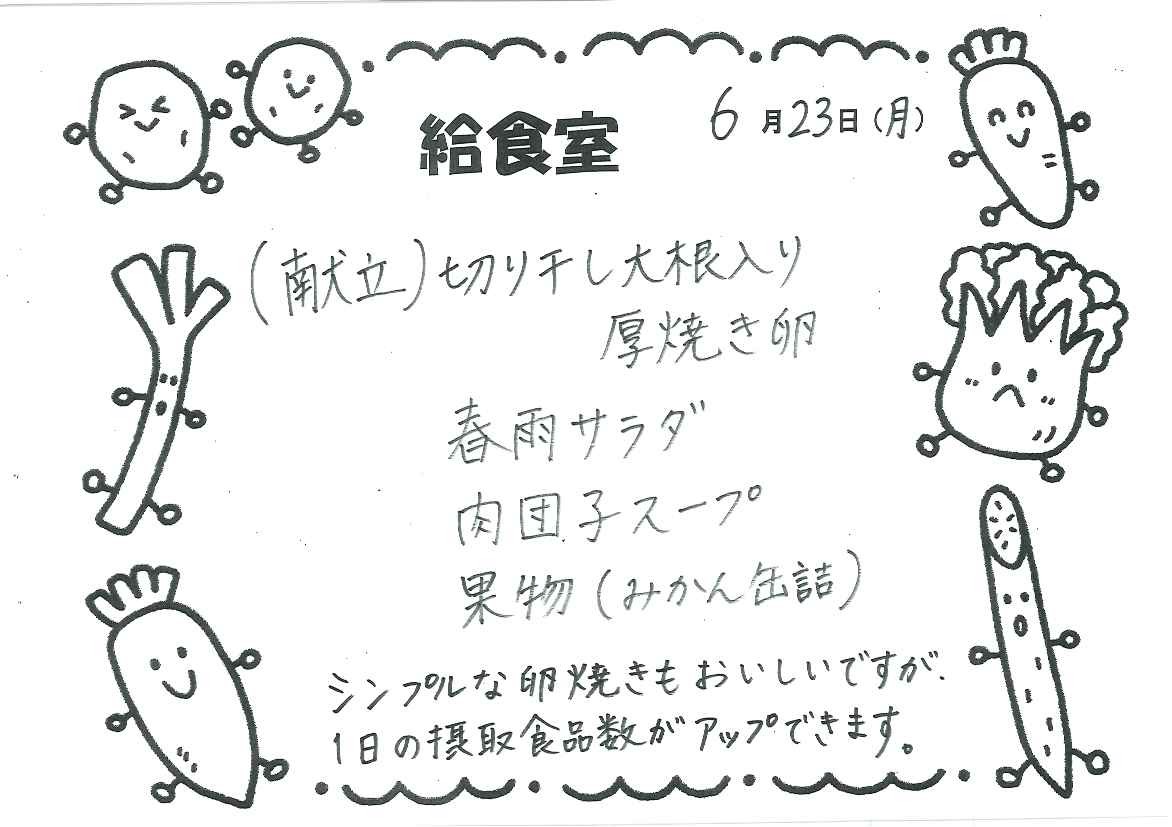 給食室
6月23日(月)
(献立)切り干し大根入り
厚焼き卵
春雨サラダ
肉団子スープ
果物(みかん缶詰)
シンプルな卵焼きもおいしいですが、
1日の摂取食品数がアップできます。